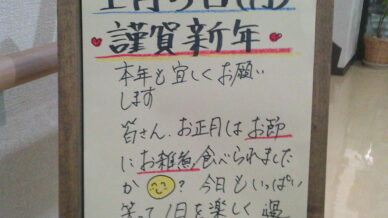 謹賀新年
本年も宜しくお願い
します
皆さん、お正月はお節
にお雑煮食べられました
か？今日もいっぱい
笑って1日を楽しく過